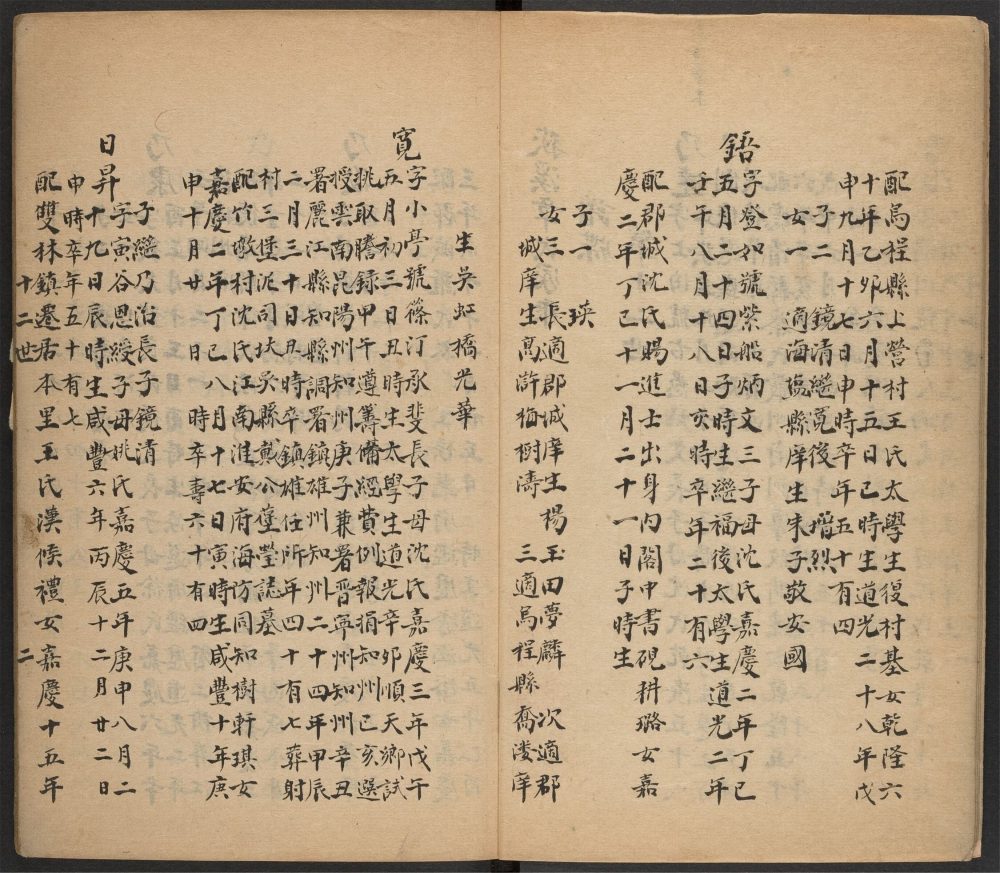 配烏程縣上營村王氏太學生復村基女乾隆六
十年乙卯六月十五日巳時生道光二十八年戊
申九月十七日申時卒年五十有四
子二 鏡清繼寬後 增烈
女一 適海鹽縣庠生朱子敬安國
鋙
字登如號紫船炳文三子母沈氏嘉慶二年丁巳
五月二十四日子時生繼福後太學生道光二年
壬午八月十八日亥時卒年二十有六
配郡城沈氏賜進士出身內閣中書硯耕璐女嘉
慶二年丁巳十一月二十一日子時生
子一 瑛
女三 長適郡城庠生楊玉田夢麟 次適郡
城庠生高滸梅樹濤 三適烏程縣喬淩庠
生吳虹橋光華
寬
字小亭號篠汀承斐長子母沈氏嘉慶三年戊午
五月初三日丑時生太學生道光辛卯順天鄉試
挑取謄錄甲午遵籌備經費例報捐知州己亥選
授雲南昆陽州知州庚子兼署晉寧州知州辛丑
署麗江縣知縣調署鎮雄州知州二十四年甲辰
二月三十日丑時卒鎮雄任所年四十有七葬射
村三堡泥司圩吳縣戴公誌墓
配竹墩村沈氏江南淮安府海防同知樹軒琪女
嘉慶二年丁巳八月十七日寅時生咸豐十年庚
申十月廿日 時卒壽六十有四
子繼乃治長子鏡清
日昇
字寅谷恩綬子母姚氏嘉慶五年庚申八月二
十九日辰時生咸豐六年丙辰十二月廿二日
申時卒年五十有七
配雙林鎮遷居本里王氏漢候禮女嘉慶十五年
十二世 二